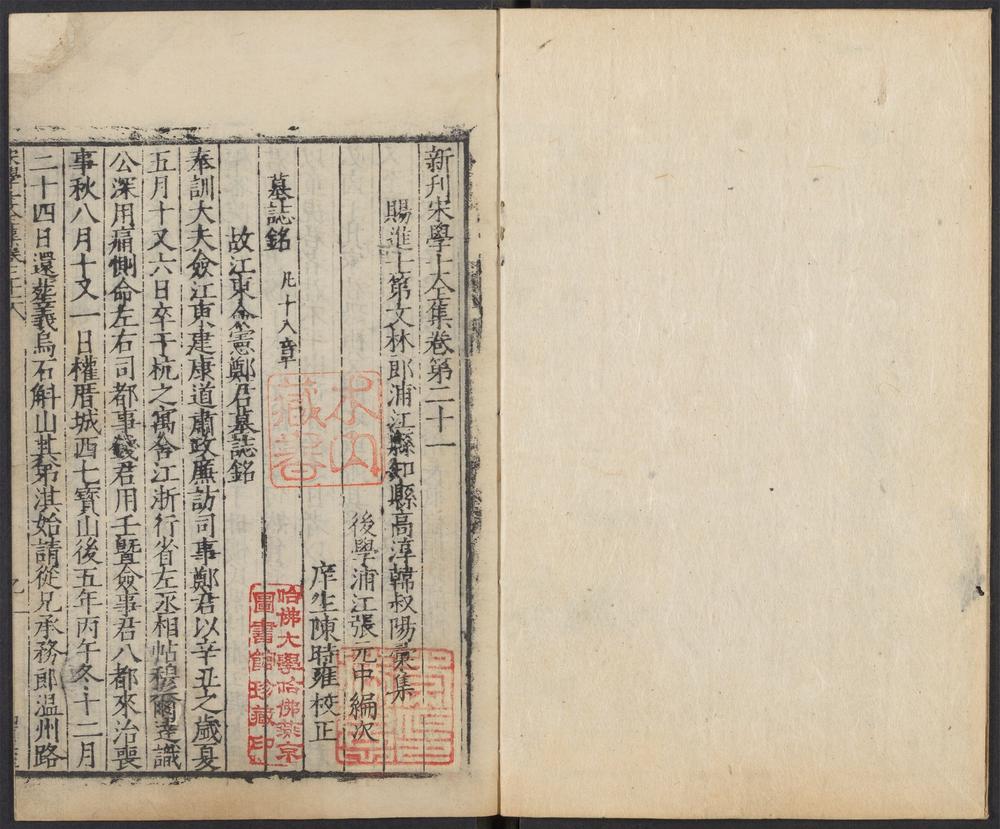 新刊宋學士全集卷第二十一
賜進士第文林郎浦江縣知縣高淳韓叔陽彙集
後學浦江張元中編次
庠生陳時雍校正
墓誌銘 凡十八章
故江東僉憲鄭君墓誌銘
奉訓大夫僉江東建康道肅政廉訪司事鄭君以辛丑之歲夏
五月十又六日卒于杭之寓舍江浙行省左丞相帖穆爾達識
公深用痛惻命左右司都事錢君用壬暨僉事君八都來治喪
事秋八月十又一日權厝城西七寶山後五年丙午冬十二月
二十四日還葬義烏石斛山其弟淇始請從兄承務郎温州路
宋學士全集卷二十一
哈佛大學哈佛燕京
圖書館珍藏印
藏書